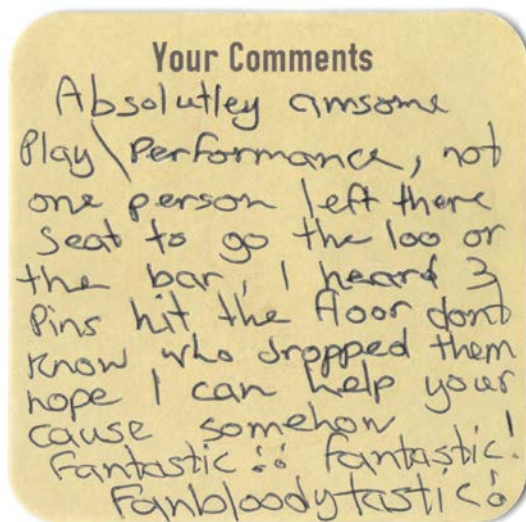 Your Comments
Absolutley amsome
Play \ Performance, not
one person left there
seat to go the loo or
the bar, I heard 3
Pins hit the floor dont
know who dropped them
hope I can help your
cause somehow !
Fantastic !! fantastic!
Fanbloodytastic!